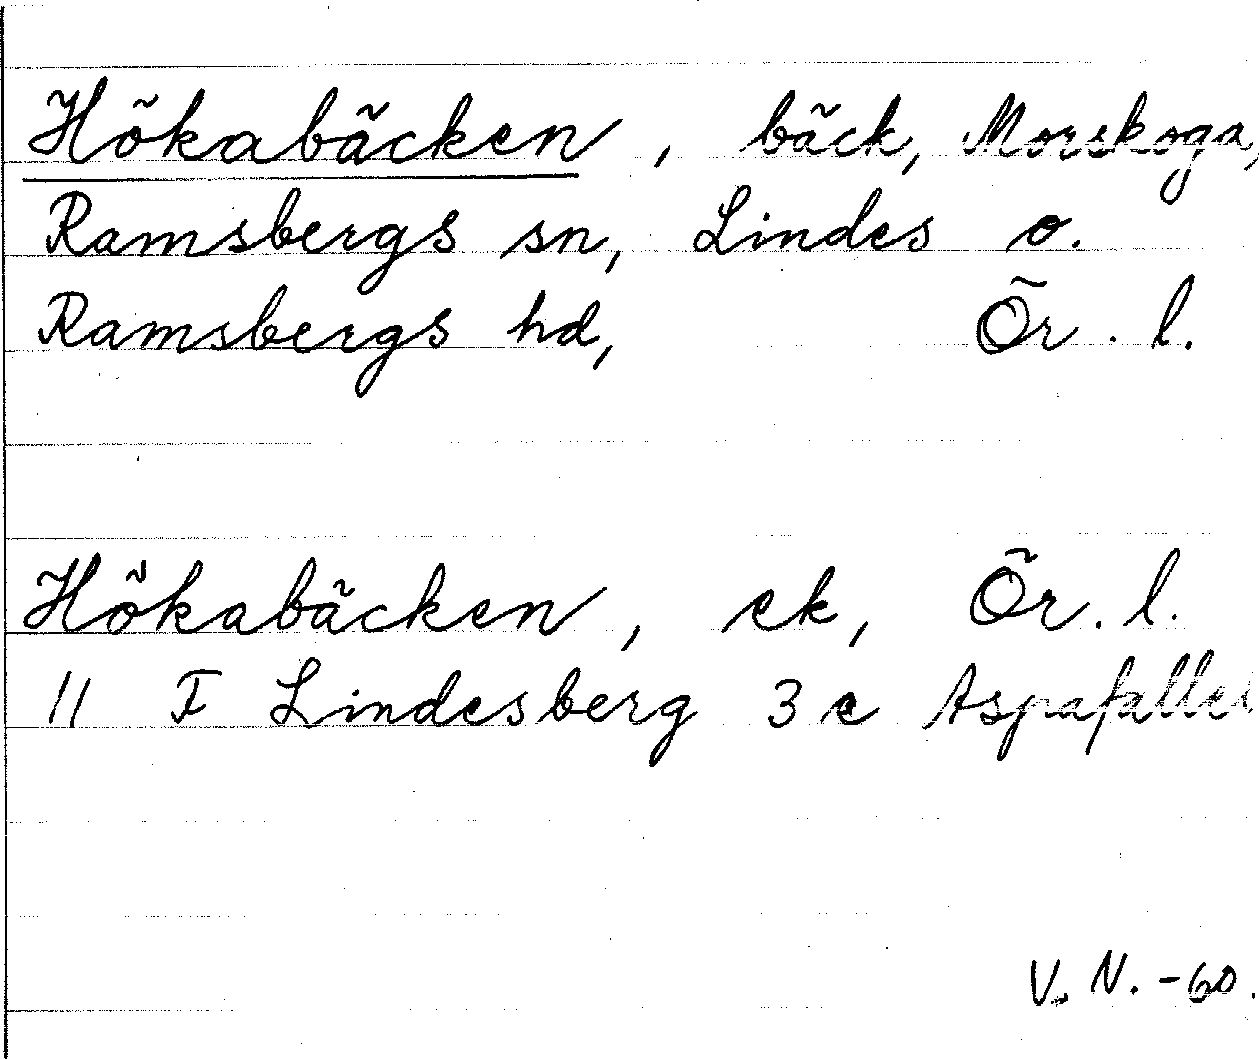 Hökabäcken, bäck, Morskoga,
Ramsbergs sn, Lindes o.
Ramsbergs hd, Ör. l.
Hökabäcken, ek, Ör. l.
11 F Lindesberg 3 e Aspafallet
V. N. -60.